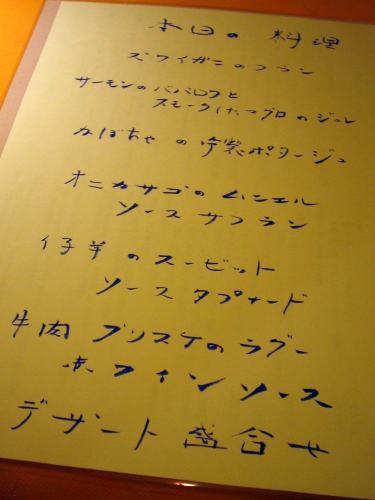 本日の 料理
ズワイガニのフラン
サーモンのババロアと
スモークしたマグロのジュレ
かぼちゃ の 冷製ポタージュ
オニカサゴの ムニエル
ソース サフラン
仔羊 の スービット
ソース タプナード
牛肉 ブリスケのラグー
赤ワインソース
デザート 盛合せ